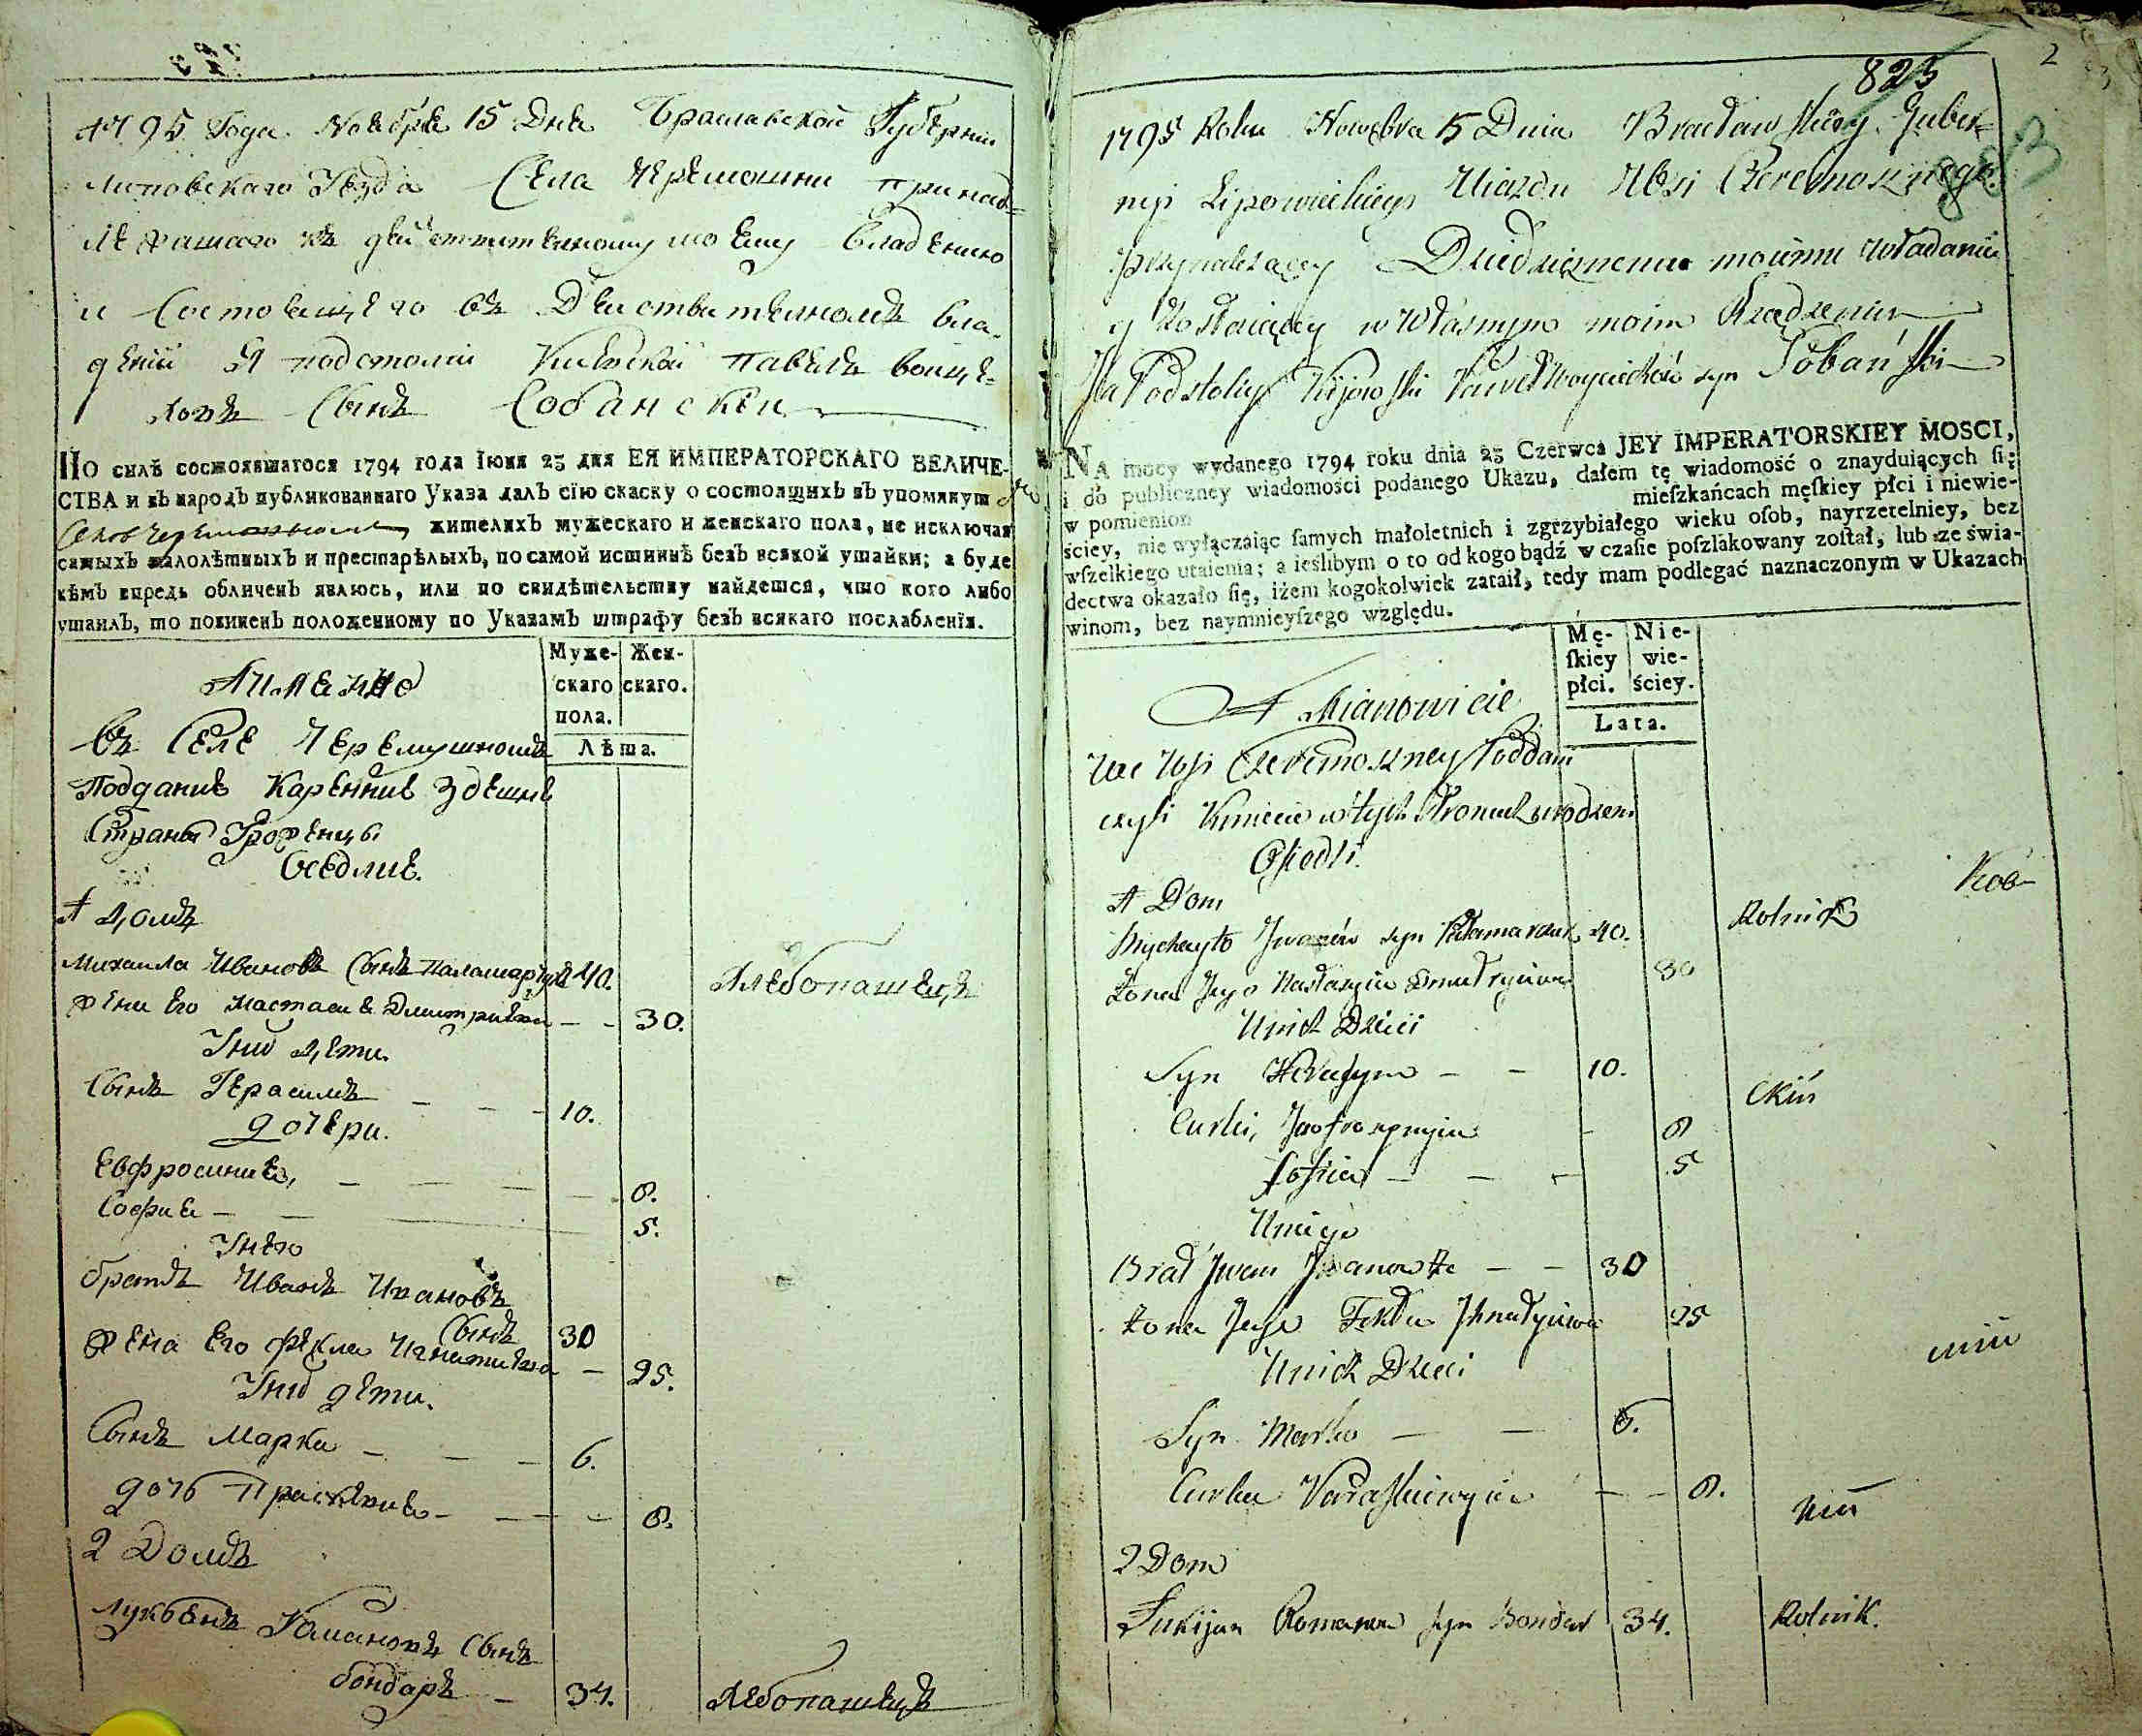 1795 Года Ноебре 15 Дне Браславской Губернии
Липовскаго Уезда Села Черемошни принад=
и Состоещего въ вла-
дении Я подстолий Киевский Павелъ Войце=
ховъ Сынъ Собанский
ПО силѣ состоявшагося 1794 года Іюня 23 дня ЕЯ ИМПЕРАТОРСКАГО ВЕЛИЧЕ-
СТВА и въ народъ публикованнаго Указа далъ сїю скаску о состоящихъ въ упомянут
жителяхъ мужескаго и женскаго пола, не исключая
самыхъ малолѣтныхъ и престарѣлыхъ, по самой истиннѣ безъ всякой утайки; а буде
кѣмъ впредь обличенъ явлюсь, или по свидѣтельству найдется, что кого либо
утаилъ, то повиненъ положенному по Указамъ штрафу безъ всякаго послабленїя.
Муже-
скаго
пола.
Жен-
скаго.
Лѣта.
А именно
въ Селе Черемушномъ
Поддание Каренние Здешне
Страны Уроженцы
Оседлие.
1 Домъ
Михаила Ивановъ Сынъ 40. Хлебопашецъ
Жена Его Настасие Дмитриева 30.
У них Дети
Сынъ Герасимъ 10.
дочери.
Евфросиние, 8.
Софие 5.
У него
братъ Иванъ Ивановъ
Сынъ 30
Жена Его Фекла Игнатиева 25.
У них дети.
Сынъ Марко 6.
дочь 8.
2 Домъ
Лукьянъ Романовъ Сынъ
бондаръ 34. Хлебопашецъ
2
823
1795 Roku Nowebra 15 Dnia Bracławskiey Guber=
nyi Lipowieckiego Uiazdu Wsi Czeremoszniego
przynalezącey Dziedzicznemu moiemu władaniu
y Zostaiącey w własnym moim Rządzeniu
Ja Podstoliy Kijowski Paweł Woyciechów syn Sobański
NA mocy wydanego 1794 roku dnia 23 Czerwca JEY IMPERATORSKIEY MOSCI,
i do publiczney wiadomości podanego Ukazu, dałem tę wiadomość o znayduiących ſię
w pomienion mieſzkańcach męſkiey płci i niewie-
ściey, nie wyłączaiąc ſamych małoletnich i zgrzybiałego wieku oſob, nayrzetelniey, bez
wſzelkiego utaienia; a ieślibym o to od kogo bądź w czaſie poſzlakowany zoſtał, lub ze świa-
dectwa okazało ſię, iżem kogokolwiek zataił, tedy mam podlegać naznaczonym w Ukazach
winom, bez naymnieyſzego względu.
Mę-
ſkiey
płci.
Nie-
wie-
ściey.
Lata.
A Mianowicie
We Wsi Czeremoszney Poddani
czyli Kmiecie w tych Stronach urodzeni
Osiedli.
1 Dom
Mychayło Iwanów syn 40. Rolnik
Zona Jego Nastazyia Dmitryiowa 30
U nich Dzieci
Syn Harasym 10.
Curki, 8
Zofiia 5
U niego
Brat Iwan 30
Zona Jego Tekla Ihnatyiowa 25
U nich Dzieci
Syn Marko 6.
Curka 8.
2 Dom
Łukijan Romanow syn Bondar 34. Rolnik.